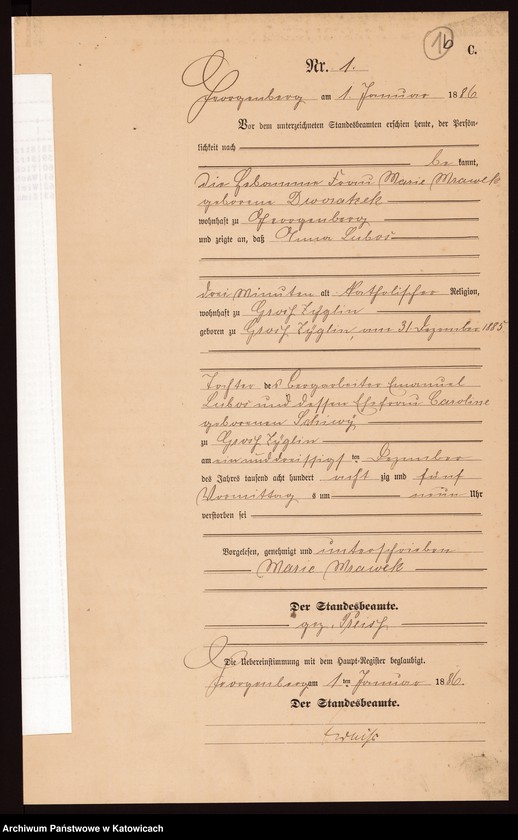 1b
C.
Nr. 1.
Georgenberg am 1 Januar 1886
Vor dem unterzeichneten Standesbeamten erschien heute, der Persön-
lichkeit nach
be kannt,
die Hebamme Frau Marie Mrawek
geborene Dworatzek
wohnhaft zu Georgenberg
und zeigte an, daß Anna Lubos
drei Minuten alt Katholischer Religion,
wohnhaft zu Groß Zyglin
geboren zu Groß Zyglin, am 31 Dezember 1885
Tochter des Bergarbeiter Emanuel
Lubos und dessen Ehefrau Caroline
geborenen
zu Groß Zyglin
am ein und dreissigsten Dezember
des Jahres tausend acht hundert acht zig und fünf
Vormittag s um neun Uhr
verstorben sei
Vorgelesen, genehmigt und unterschrieben
Marie Mrawek
Der Standesbeamte.
gez.
Die Uebereinstimmung mit dem Haupt-Register beglaubigt.
Georgenberg am 1ten Januar 1886.
Der Standesbeamte.
Archiwum Państwowe w Katowicach